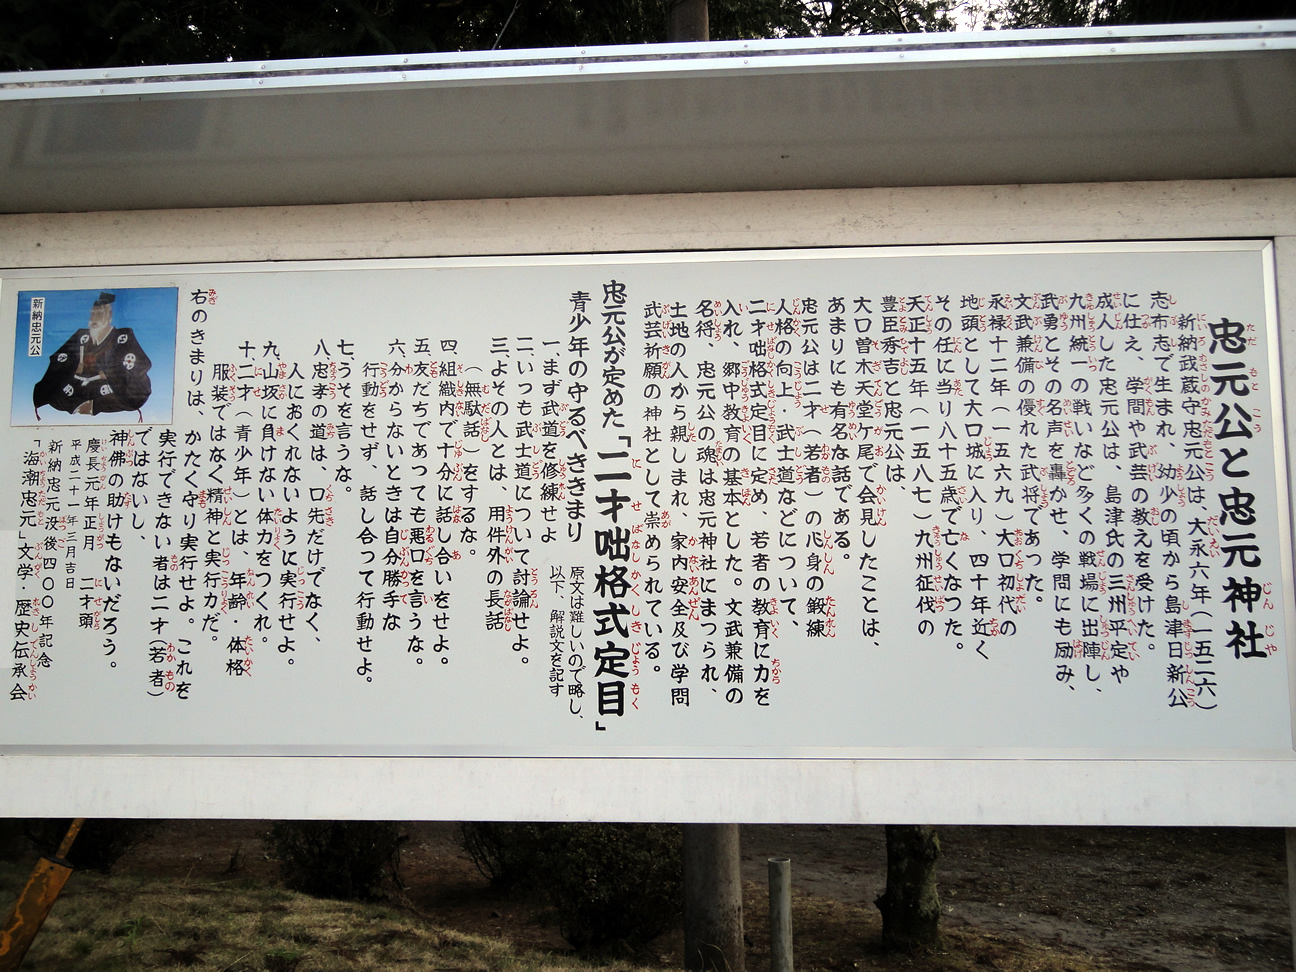 忠元公と忠元神社
新納武蔵守忠元公は、大永六年(一五二六)
志布志で生まれ、幼少の頃から島津日新公
に仕え、学問や武芸の教えを受けた。
成人した忠元公は、島津氏の三州平定や
九州統一の戦いなど多くの戦場に出陣し、
武勇とその名声を轟かせ、学問にも励み、
文武兼備の優れた武将であった。
永禄十二年(一五六九)大口初代の
地頭として大口城に入り、四十年近く
その任に当り八十五歳で亡くなった。
天正十五年(一五八七)九州征伐の
豊臣秀吉と忠元公は、
大口曽木天堂ケ尾で会見したことは、
あまりにも有名な話である。
忠元公は二才(若者)の心身の鍛練
人格の向上・武士道などについて、
二才咄格式定目に定め、若者の教育に力を
入れ、郷中教育の基本とした。文武兼備の
名将、忠元公の魂は忠元神社にまつられ、
土地の人から親しまれ、家内安全及び学問
武芸祈願の神社として崇められている。
忠元公が定めた「二才咄格式定目」
青少年の守るべききまり
原文は難しいので略し、
以下、解説文を記す
一、まず武道を修練せよ
二、いつも武士道について討論せよ。
三、よその人とは、用件外の長話
(無駄話)をするな。
四、組織内で十分に話し合いをせよ。
五、友だちであっても悪口を言うな。
六、分からないときは自分勝手な
行動をせず、話し合って行動せよ。
七、うそを言うな。
八、忠孝の道は、口先だけでなく、
人におくれないように実行せよ。
九、山坂に負けない体力をつくれ。
十、二才(青少年)とは、年齢・体格
服装ではなく精神と実行力だ。
右のきまりは、かたく守り実行せよ。これを
実行できない者は二才(若者)
ではないし、
神佛の助けもないだろう。
慶長元年正月 二才頭
平成二十一年三月吉日
新納忠元没後四〇〇年記念
「海潮忠元」文学・歴史伝承会
新納忠元公